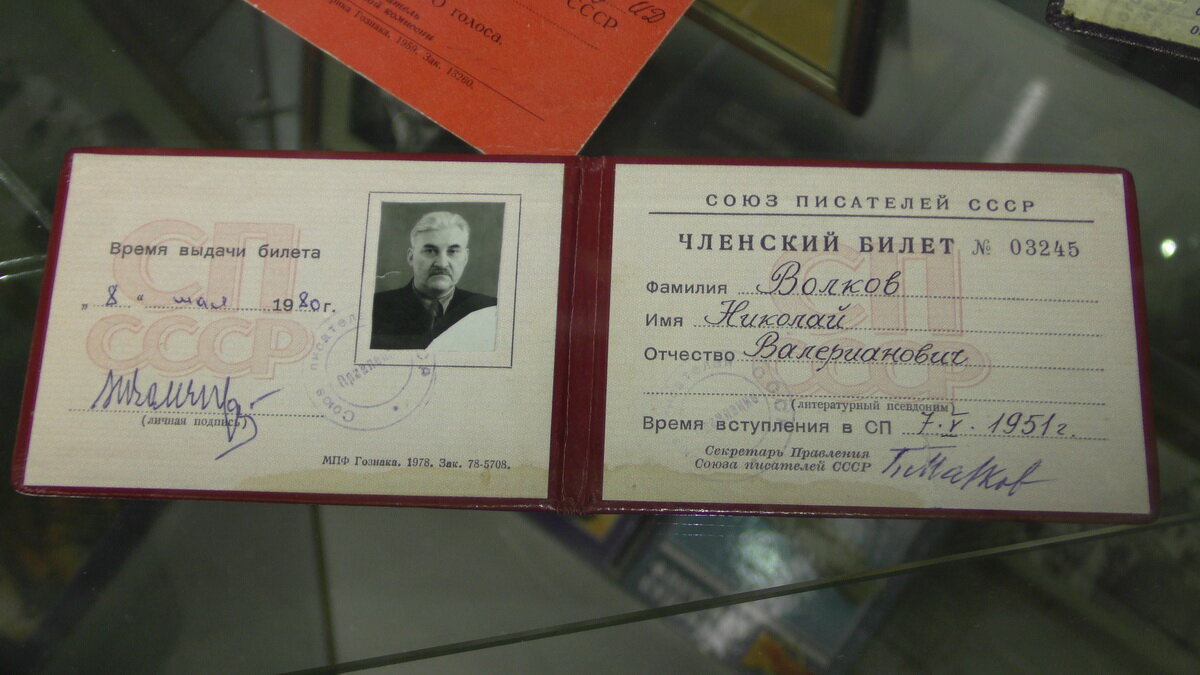 ИД
СССР
О голоса.
Гознака. 1959. Зак. 13260.
СП
СССР
Время выдачи билета
„ 8 “ мая 1980 г.
(личная подпись)
МПФ Гознака. 1978. Зак. 78-5708.
СОЮЗ ПИСАТЕЛЕЙ СССР
ЧЛЕНСКИЙ БИЛЕТ № 03245
СП
СССР
Фамилия Волков
Имя Николай
Отчество Валерианович
(литературный псевдоним)
Время вступления в СП 7.V.1951 г.
Секретарь Правления
Союза писателей СССР
Г. Марков